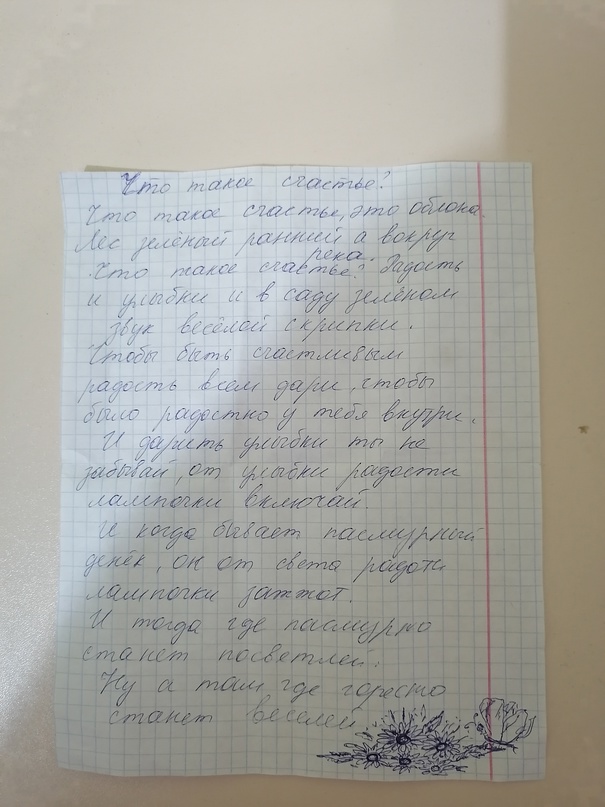 Что такое счастье?
Что такое счастье, это облока.
Лес зелёный ранний а вокруг
река.
Что такое счастье? Радость
и улыбки и в саду зелёном
звук весёлой скрипки.
Чтобы быть счастливым
радость всем дари, чтобы
было радостно у тебя внутри.
И дарить улыбки ты не
забывай, от улыбки радости
лампочки включай.
И когда бывает пасмурный
денёк, он от света радоти
лампочки зажжот.
И тогда где пасмурно
станет посветлей.
Ну а там где горестно
станет веселей